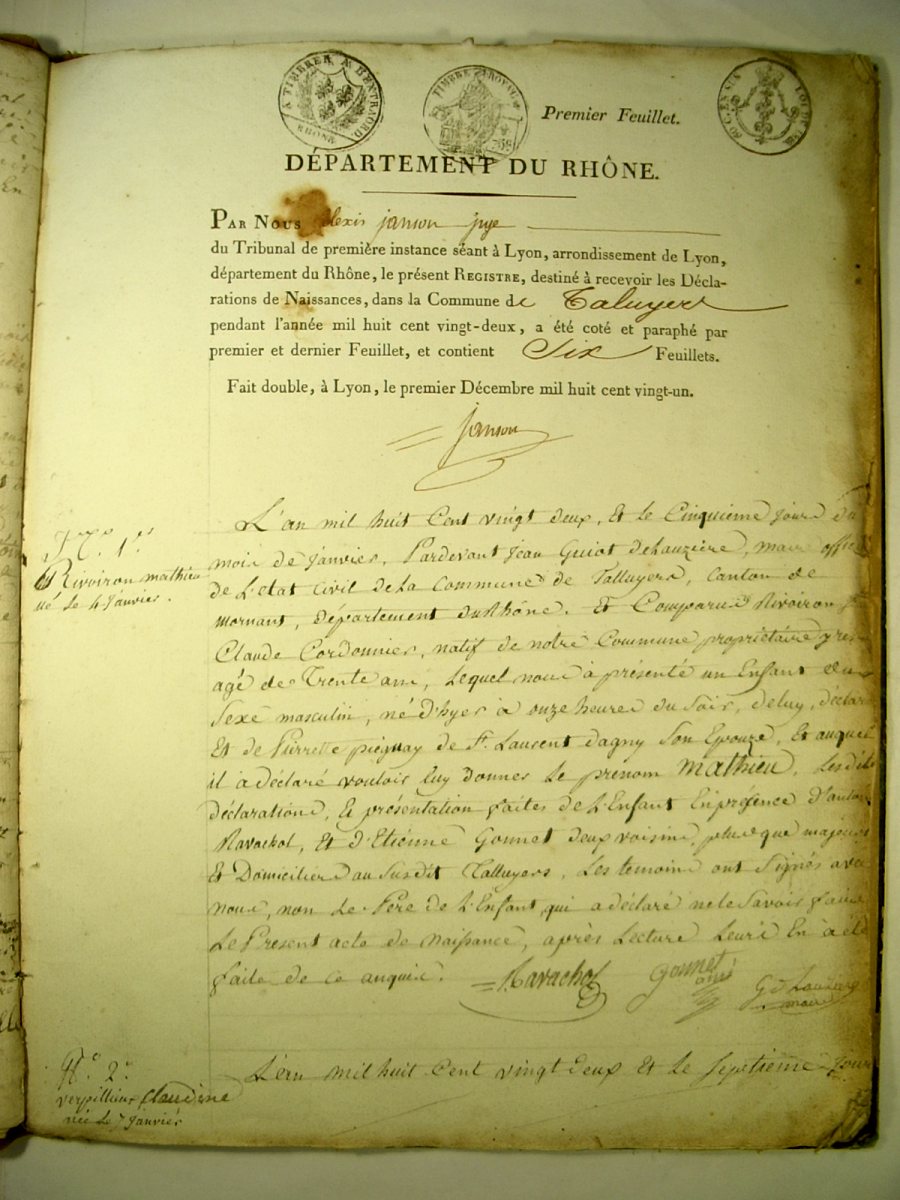 A TIMBRER A L'EXTRAORD.
RHÔNE
TIMBRE ROYAL
Premier Feuillet.
DÉPARTEMENT DU RHÔNE.
PAR NOUS alexis janson juge
du Tribunal de première instance séant à Lyon, arrondissement de Lyon,
département du Rhône, le présent REGISTRE, destiné à recevoir les Décla-
rations de Naissances, dans la Commune de Taluyers
pendant l'année mil huit cent vingt-deux, a été coté et paraphé par
premier et dernier Feuillet, et contient Six Feuillets.
Fait double, à Lyon, le premier Décembre mil huit cent vingt-un.
janson
N.º 1.er
Rivoiron mathieu
né le 4 janvier.
L'an mil huit Cent vingt deux, Et le Cinquieme Jour du
mois de janvier, Pardevant Jean Guiot delauzière, maire offici
de L'état Civil de La Commune de Talluyers, Canton de
mornant, département du Rhône. Et Comparu Rivoiron
Claude Cordonnier, natif de notre Commune propriétaire y
agé de Trente ans, Lequel nous à présenté un Enfant du
Sexe masculin, né D'hyer à onze heures du Soir, de luy, déclara
Et de Pierrette pieguay de St. Laurent dagny Son Epouze, Et auquel
il a déclaré vouloir luy donner le prenom mathieu, Lesdites
déclarations, Et présentation faites de L'Enfant En présence D'antoine
Ravachol, Et d'Etiénne Gonnet deux voisins, plus que majeurs
Et Domiciliers au Susdit Talluyers, Les temoins ont Signés avec
nous, non Le Père de L'Enfant, qui a déclaré ne le Savoir faire
Le Present acte de naissance, après Lecture Leurs En à été
faite de ce anquis.
Ravachol Gonnet ainé G. d. Lauziere maire
N.º 2.
verpillieux Claudine
née Le 7 janvier
L'an mil huit Cent vingt Deux Et Le Septieme Jour